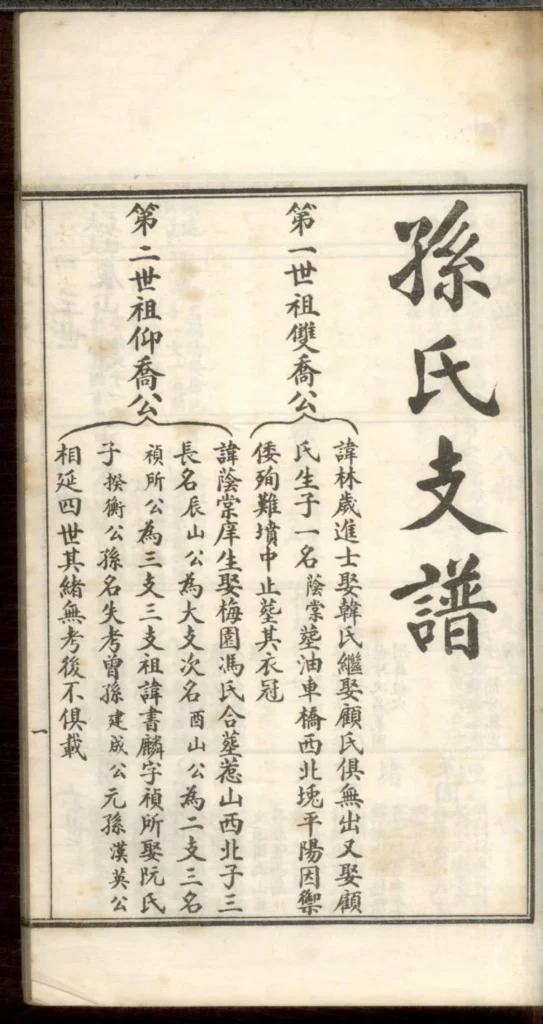 孫氏支譜
第一世祖雙喬公
諱林歲進士娶韓氏繼娶顧氏俱無出又娶顧
氏生子一名蔭棠塟油車橋西北堍平陽因禦
倭殉難墳中止塟其衣冠
第二世祖仰喬公
諱蔭棠庠生娶梅園馮氏合塟惹山西北子三
長名辰山公為大支次名酉山公為二支三名
禎所公為三支三支祖諱書麟字禎所娶阮氏
子揆衡公孫名失考曾孫建成公元孫漢英公
相延四世其緒無考後不俱載
一